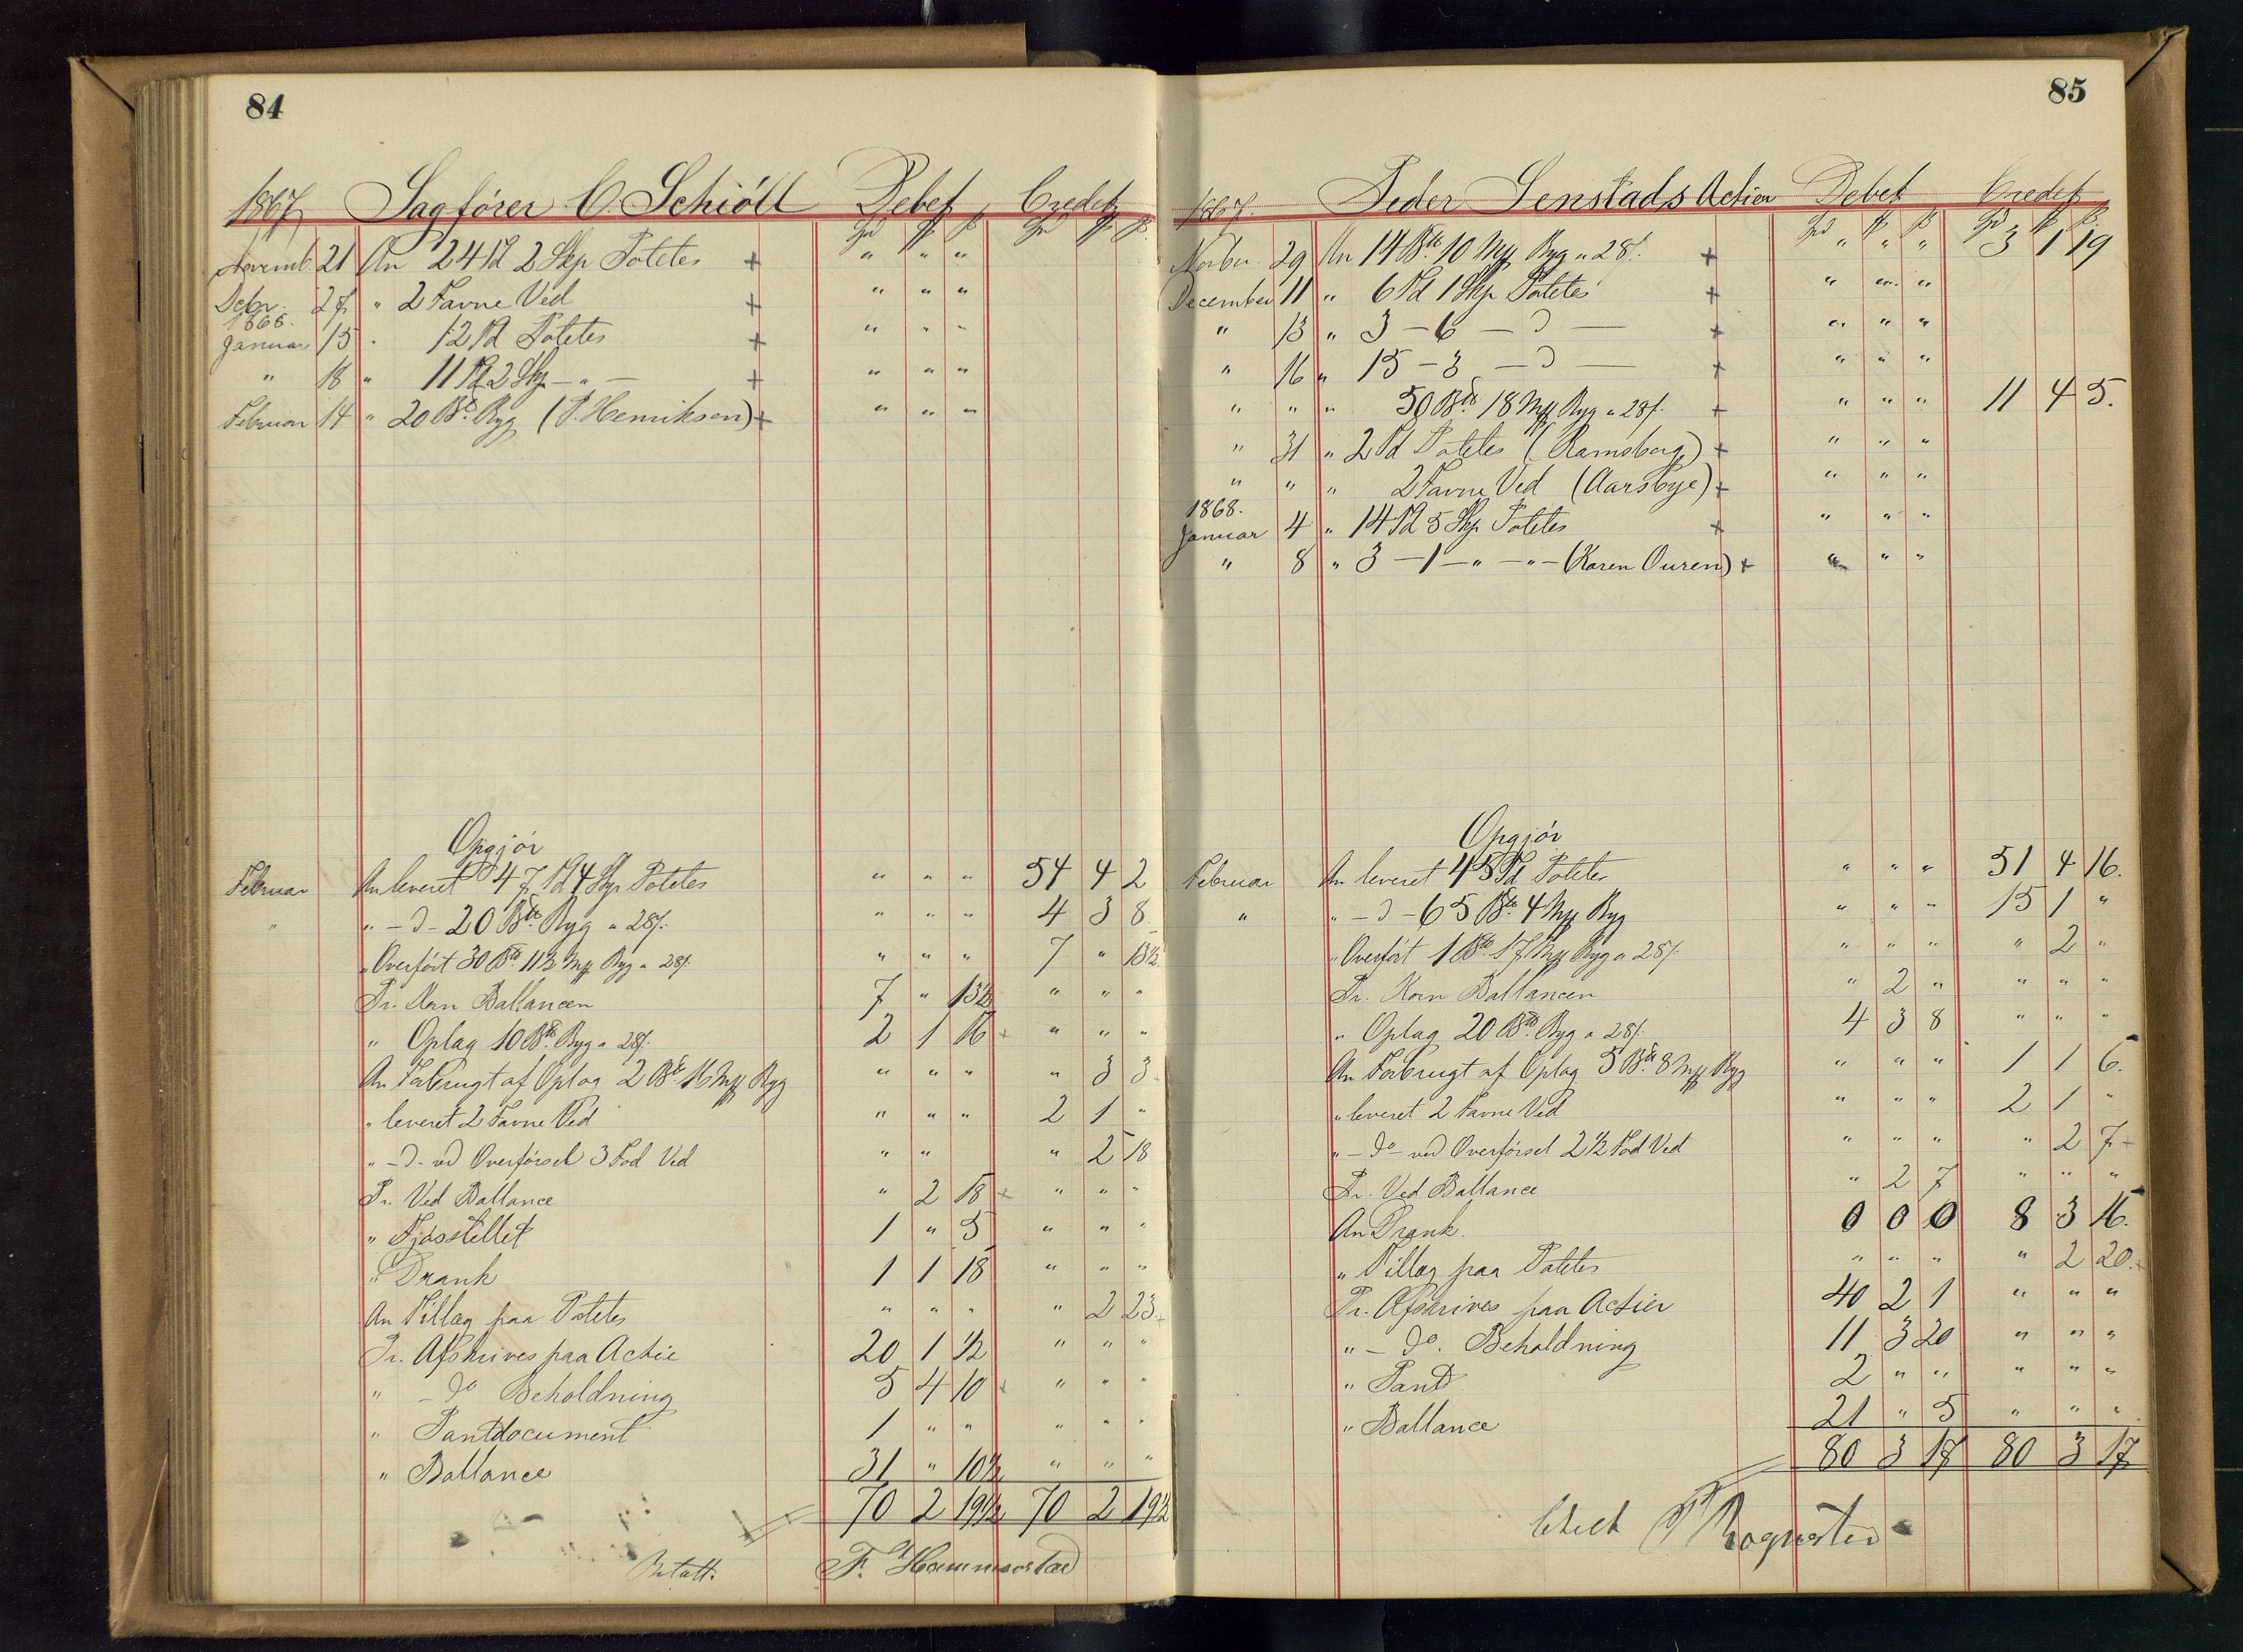 84
1867 Sagfører C. Schiöll Debet Credet
Novemb. 21 An 24 Td 2 Skp Potetes + " " "
Debr. 27 " 2 Favne Ved + " " "
1868.
Januar 15 " 12 Td Potetes + " " "
" 18 " 11 Td 2 Skp — " — + " " "
Februar 14 " 20 Bd. Byg (P. Henriksen) + " " "
Opgjør
Februar An leveret 47 Td 4 Skp Potetes " " " 54 4 2
" " — d — 20 Bd. Byg a 28/. " " " 4 3 8
" Overført 30 Bd. 11½ Mk Byg a 28/. " " " 7 " 13½
Pr. Korn Ballancen 7 " 13½ " " "
" Oplag 10 Bd. Byg a 28/. 2 1 16 " " "
An Forbrugt af Oplag 2 Bd. 16 Mk Byg " " " " 3 3
" leveret 2 Favne Ved " " " 2 1 "
" — d — ved Overførsel 3 Fod Ved " " " 2 18
Pr. Ved Ballance " 2 18 " " "
" Fjøsstellet 1 " 5 " " "
" Drank 1 1 18 " " "
An Tillæg paa Potetes " " " " 2 23
Pr. Afskrives paa Actie 20 1 ½ " " "
" — do Beholdning 5 4 10 " " "
" Pantdocument 1 " " " " "
" Ballance 31 " 10½ " " "
70 2 19½ 70 2 19½
Betalt. F. Hammerstad
85
1867. Peder Senstads Actien Debet Credet
Novber 29 An 14 Bd. 10 Mk Byg a 28/. + " " " 3 1 19
December 11 " 6 Td 1 Skp Potetes + " " "
" 13 " 3 — 6 — d — + " " "
" 16 " 15 — 3 — d — + " " "
" " " 50 Bd. 18 Mk Byg a 28/. + " " " 11 4 5.
" 31 " 2 Td Potetes (Ramsberg) + " " "
" " " 2 Favne Ved (Aarsbye) + " " "
1868.
Januar 4 " 14 Td 5 Skp Potetes + " " "
" 8 " 3 — 1 — " — " — (Karen Ouren) + " " "
Opgjør
Februar An leveret 45 Td Potetes " " " 51 4 16.
" " — d — 65 Bd. 4 Mk Byg " " " 15 1 "
" Overført 1 Bd. 17 Mk Byg a 28/. " " " " 2 "
Pr. Korn Ballancen " 2 " " " "
" Oplag 20 Bd. Byg a 28/. 4 3 8 " " "
An Forbrugt af Oplag 5 Bd. 8 Mk Byg " " " 1 1 6.
" leveret 2 Favne Ved " " " 2 1 "
" — do — ved Overførsel 2½ Fod Ved " " " " 2 7
Pr. Ved Ballance " 2 7 " " "
An Drank. 0 0 0 8 3 16.
" Tillæg paa Potetes " " " " 2 20.
Pr. Afskrives paa Actier 40 2 1 " " "
" — do. Beholdning 11 3 20 " " "
" Pant 2 " " " " "
" Ballance 21 " 5 " " "
80 3 17 80 3 17